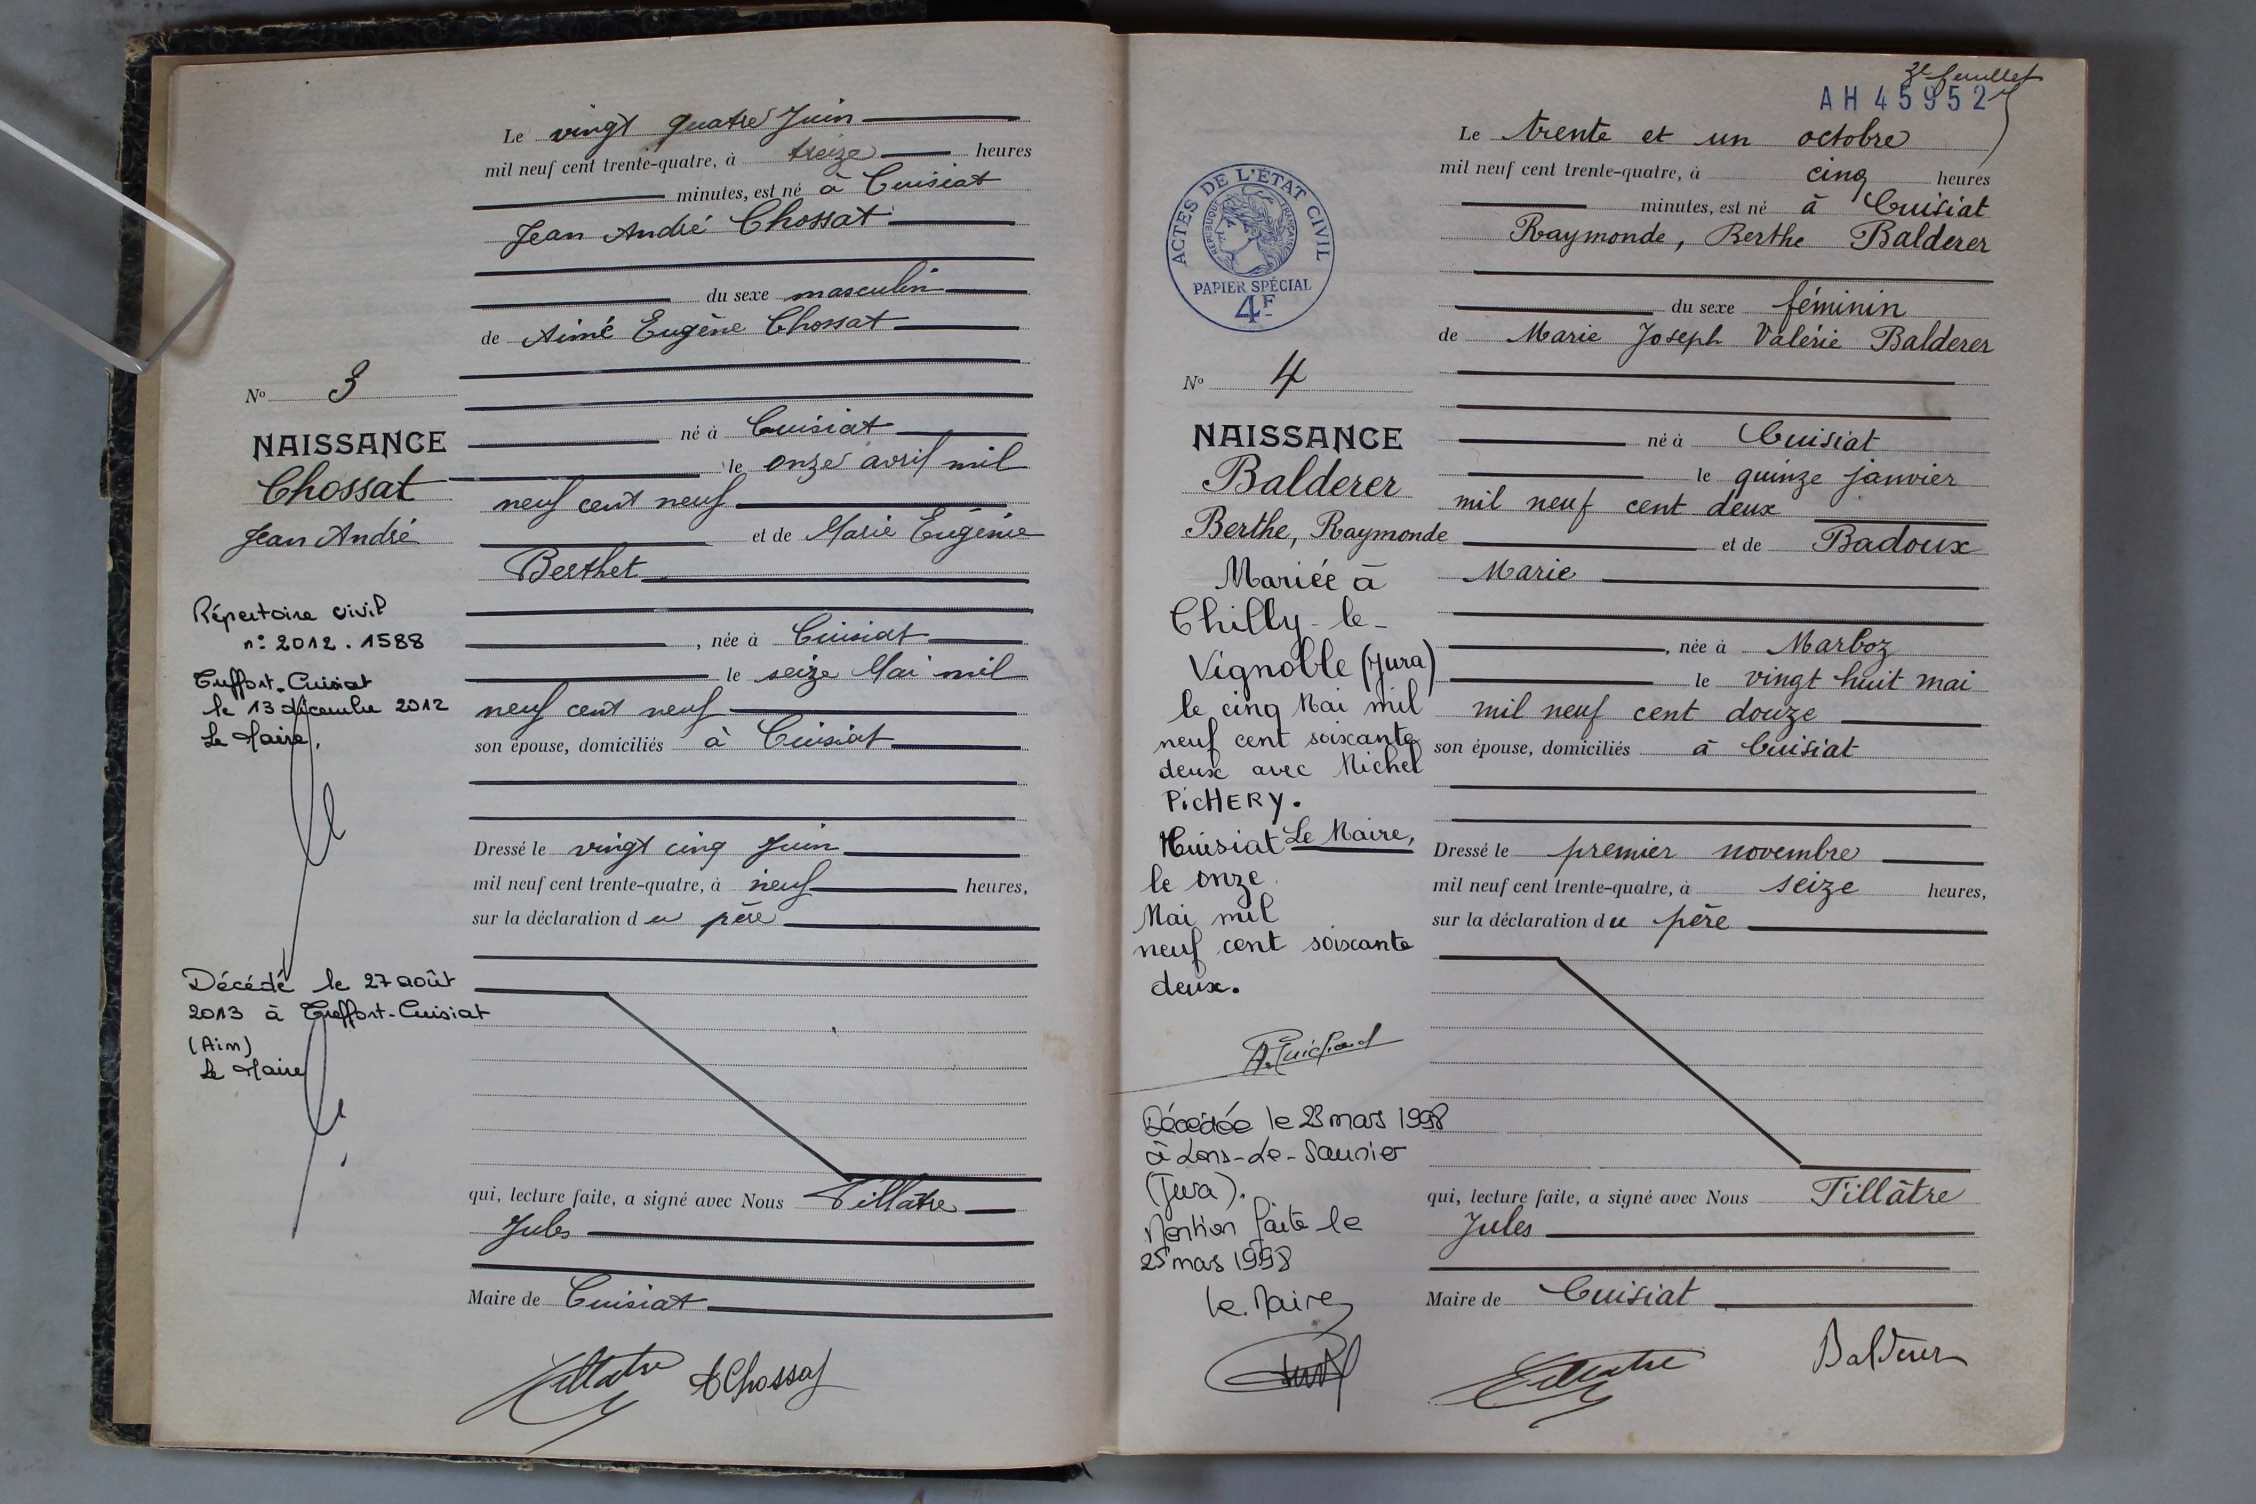 Le vingt quatre Juin
mil neuf cent trente-quatre, à treize heures
minutes, est né à Cuisiat
Jean André Chossat
du sexe masculin
de Aimé Eugène Chossat
né à Cuisiat
le onze avril mil
neuf cent neuf
et de Marie Eugénie
Berthet
, née à Cuisiat
le seize Mai mil
neuf cent neuf
son épouse, domiciliés à Cuisiat
Dressé le vingt cinq Juin
mil neuf cent trente-quatre, à neuf heures,
sur la déclaration du père
qui, lecture faite, a signé avec Nous Tillâtre
Jules
Maire de Cuisiat
Tillatre AChossat
No 3
NAISSANCE
Chossat
Jean André
Répertoire civil
n: 2012. 1588
Treffort-Cuisiat
le 13 décembre 2012
Le Maire,
Décédé le 27 août
2013 à Treffort-Cuisiat
(Ain)
Le Maire
3e feuillet
AH 45952
Le trente et un octobre
mil neuf cent trente-quatre, à cinq heures
minutes, est né à Cuisiat
Raymonde, Berthe Balderer
du sexe féminin
de Marie Joseph Valérie Balderer
né à Cuisiat
le quinze janvier
mil neuf cent deux
et de Badoux
Marie
, née à Marboz
le vingt huit mai
mil neuf cent douze
son épouse, domiciliés à Cuisiat
Dressé le premier novembre
mil neuf cent trente-quatre, à seize heures,
sur la déclaration du père
qui, lecture faite, a signé avec Nous Tillâtre
Jules
Maire de Cuisiat
Tillatre Balderer
ACTES DE L'ÉTAT CIVIL
RÉPUBLIQUE FRANÇAISE
PAPIER SPÉCIAL
4F
No 4
NAISSANCE
Balderer
Berthe, Raymonde
Mariée à
Chilly-le-
Vignoble (Jura)
le cinq Mai mil
neuf cent soixante
deux avec Michel
PICHERY.
Cuisiat Le Maire,
le onze
Mai mil
neuf cent soixante
deux.
Décédée le 23 mars 1998
à Lons-Le-Saunier
(Jura).
Mention faite le
25 mars 1998
Le Maire